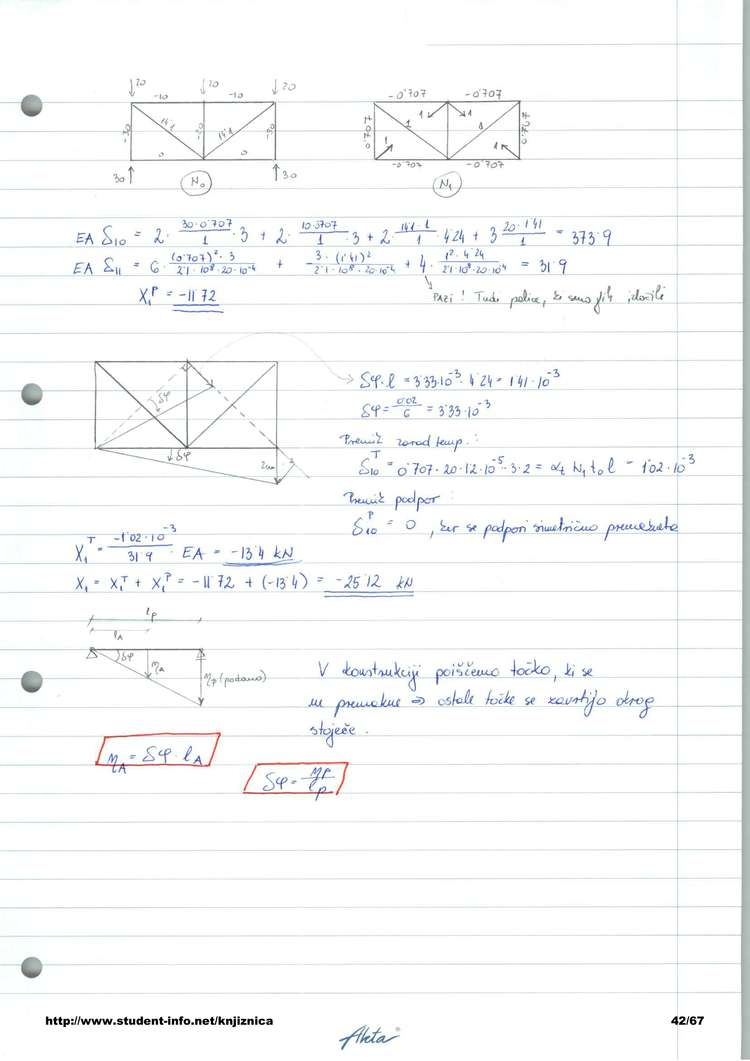 20 20 20
-10 -10
-30 14'1 -20 14'1 -30
0 0
30 30
N₀
-0'707 -0'707
0'707 1 1 1 1 0'707
1 1
-0'707 -0'707
N₁
EA δ₁₀ = 2 · 30·0'707/1 · 3 + 2 · 10·0707/1 · 3 + 2 · 14'1·1/1 · 4'24 + 3 20·1'41/1 = 373'9
EA δ₁₁ = 6 · (0'707)²·3/2'1·10⁸·20·10⁻⁴ + 3·(1'41)²/2'1·10⁸·20·10⁻⁴ + 4 · 1²·4'24/2'1·10⁸·20·10⁻⁴ = 31'9
X₁ᴾ = -11'72
PAZI! Tudi palice, ki smo jih izločili
δφ·l = 3'33·10⁻³·4'24 = 1'41·10⁻³
δφ = 0'02/6 = 3'33·10⁻³
δφ
δφ
2cm
Premik zarad temp.:
δ₁₀ᵀ = 0'707·20·12·10⁻⁵·3·2 = αₜ N₁ t₀ l = 1'02·10⁻³
Premik podpor:
δ₁₀ᴾ = 0, ker se podpori simetrično premakneta
X₁ᵀ = -1'02·10⁻³/31'9 · EA = -13'4 kN
X₁ = X₁ᵀ + X₁ᴾ = -11'72 + (-13'4) = -25'12 kN
lp
lA
δφ
ηA
ηp (podano)
V konstrukciji poiščemo točko, ki se
ne premakne ⇒ ostale točke se zavrtijo okrog
stoječe.
ηA = δφ · lA
δφ = ηp/lp
http://www.student-info.net/knjiznica
42/67
Akta